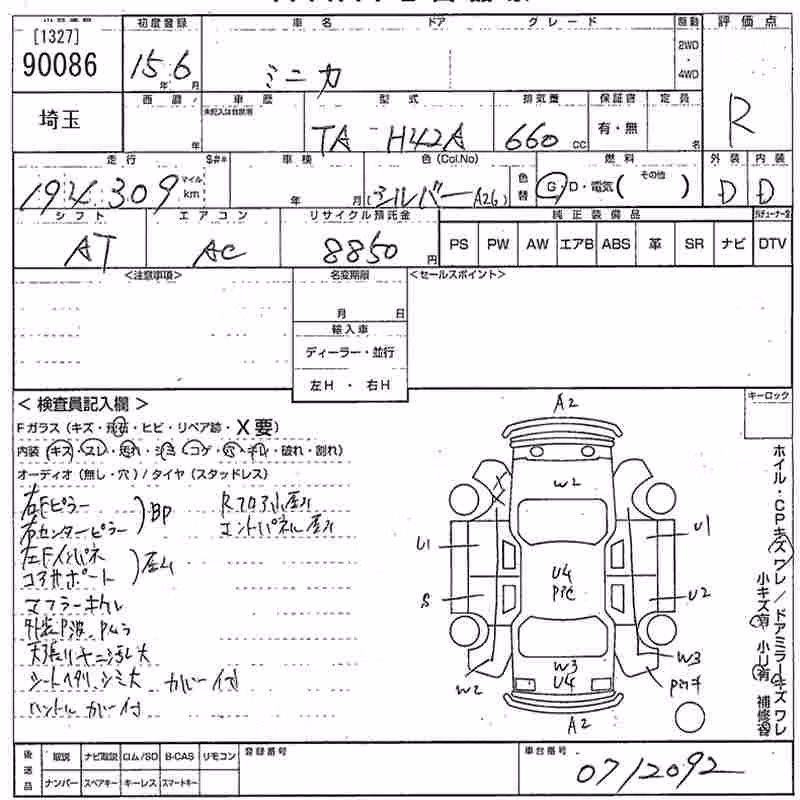 [1327]
90086
埼玉
初度登録
15年6月
車名 ドア グレード
ミニカ
駆動
2WD
・
4WD
評価点
R
西暦 年
車歴
未記入は自家用
型式
TA H42A
排気量
660 CC
保証書
有・無
定員
名
走行 S#*
194309 マイル km
車検
年 月
色 (Col.No)
(シルバー A26)
色替
燃料
G・D・電気( その他 )
外装 内装
D D
シフト
AT
エアコン
AC
リサイクル預託金
8850円
純正装備品
PS PW AW エアB ABS 革 SR ナビ DTV
<注意事項>
名変期限
月 日
輸入車
ディーラー・並行
左H ・ 右H
<セールスポイント>
キーロック
< 検査員記入欄 >
Fガラス (キズ・飛石・ヒビ・リペア跡・X要)
内装 (キズ・スレ・汚れ・シミ・コゲ・穴・キレ・破れ・割れ)
オーディオ (無し・穴) / タイヤ (スタッドレス)
右Fピラー
右センターピラー )BP
左Fインパネ
コアサポート
Rフロア
エンドパネル
マフラーキズ
外装P波、Pムラ
天張りヤニ汚レ大
シートヘタリ、シミ大 カバー付
ハンドルカバー付
A2
W2
X
U1
S
W2
U4
PIC
W3
U4
U1
U2
W3
Pハゲ
A2
ホイル・CPキズワレ / ドアミラーキズワレ
小キズ有 小U有 補修有
後送品
取説 ナビ取説 ロム/SD B-CAS リモコン
ナンバー スペアキー キーレス スマートキー
登録番号
車台番号
0712092